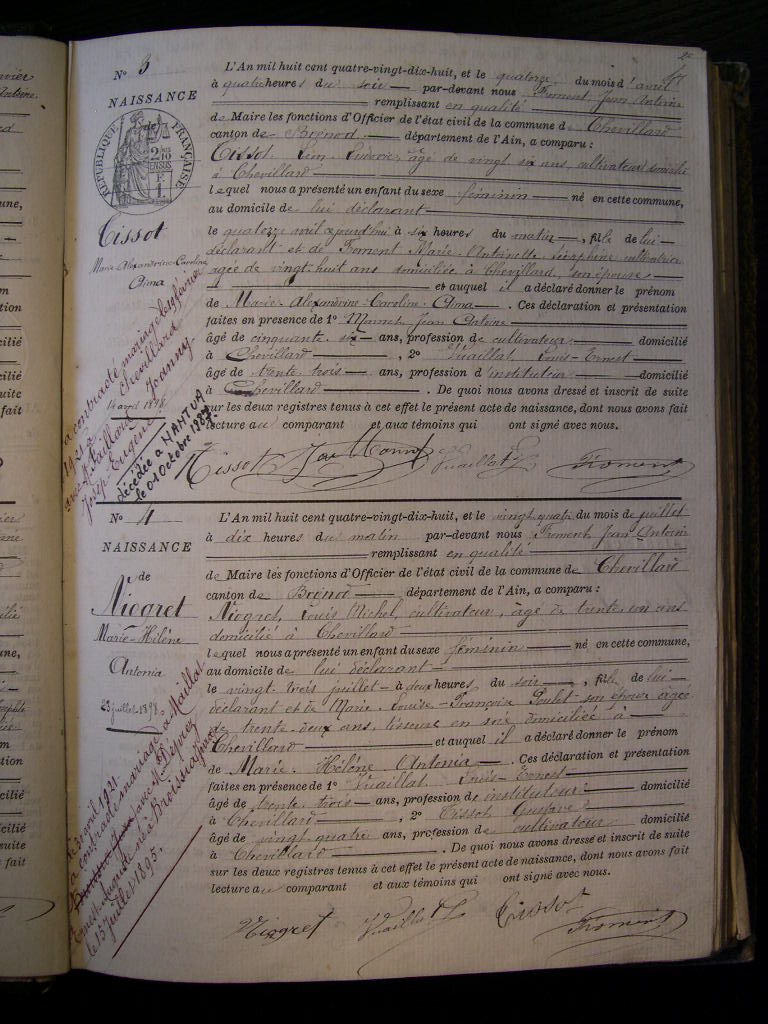 N° 3
NAISSANCE
RÉPUBLIQUE FRANÇAISE
Cissot
Marie-Alexandrine-Caroline
Aima
14 avril 1898
a contracté mariage le 19 février
1921 à Chevillard
avec Vaillard
Josep Eugène Joanny
décédée à NANTUA
le 01 Octobre 1987
L'An mil huit cent quatre-vingt-dix-huit, et le quatorze du mois d'avril
à quatre heures du soir par-devant nous Froment Jean Antoine
remplissant en qualité
de Maire les fonctions d'Officier de l'état civil de la commune de Chevillard
canton de Brénod département de l'Ain, a comparu :
Cissot Ludovic âgé de vingt six ans, cultivateur domicilié
à Chevillard
lequel nous a présenté un enfant du sexe féminin né en cette commune,
au domicile de lui déclarant
le quatorze avril aujourd'hui à six heures du matin, fille de lui
déclarant et de Froment Marie Antoinette Joséphine cultivatrice
âgée de vingt-huit ans domiciliée à Chevillard, son épouse
et auquel il a déclaré donner le prénom
de Marie-Alexandrine-Caroline-Aima. Ces déclaration et présentation
faites en présence de 1° Monnet Jean Antoine
âgé de cinquante six ans, profession de cultivateur domicilié
à Chevillard, 2° Vuaillat Louis-Ernest
âgé de trente trois ans, profession d'instituteur domicilié
à Chevillard. De quoi nous avons dressé et inscrit de suite
sur les deux registres tenus à cet effet le présent acte de naissance, dont nous avons fait
lecture au comparant et aux témoins qui ont signé avec nous.
Cissot Monnet Vuaillat L Froment
N° 4
NAISSANCE
de
Niogret
Marie-Hélène
Antonia
23 juillet 1898
Le 30 avril 1921
a contracté mariage à Maillat
avec M. Déprez
Ernest né à Broissia Jura
le 15 juillet 1895.
L'An mil huit cent quatre-vingt-dix-huit, et le vingt quatre du mois de juillet
à dix heures du matin par-devant nous Froment Jean-Antoine
remplissant en qualité
de Maire les fonctions d'Officier de l'état civil de la commune de Chevillard
canton de Brénod département de l'Ain, a comparu :
Niogret, Louis Michel, cultivateur, âgé de trente un ans
domicilié à Chevillard
lequel nous a présenté un enfant du sexe féminin né en cette commune,
au domicile de lui déclarant
le vingt trois juillet à deux heures du soir, fille de lui
déclarant et de Marie-Louise-Françoise Poulet son épouse âgée
de trente-deux ans, tisseuse en soie domiciliée à
Chevillard et auquel il a déclaré donner le prénom
de Marie Hélène Antonia. Ces déclaration et présentation
faites en présence de 1° Vuaillat Louis Ernest
âgé de trente trois ans, profession de instituteur domicilié
à Chevillard, 2° Cissot Gustave
âgé de vingt quatre ans, profession de cultivateur domicilié
à Chevillard. De quoi nous avons dressé et inscrit de suite
sur les deux registres tenus à cet effet le présent acte de naissance, dont nous avons fait
lecture au comparant et aux témoins qui ont signé avec nous.
Niogret Vuaillat L Cissot Froment